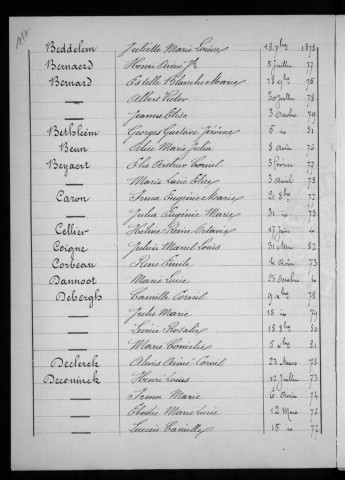 Beddelem Juliette Marie Louise 18 7bre 1873
Bernaerd Henri Aimé Jh 5 Juillet 77
Bernard Estelle Blanche Marie 18 9bre 75
— Albert Victor 30 Juillet 78
— Jeanne Elise 3 Octobre 79
Bethsleem Georges Gustave Jérôme 5 io 81
Beun Alice Marie Julia 8 Août 76
Beyaert Elie Arthur Cornil 3 Février 77
— Marie Lucie Elise 3 Avril 78
Caron Irma Eugénie Marie 21 8bre 77
— Julia Eugénie Marie 31 io 73
Cellier Hélène Reine Octavie 17 Juin
Coigne Julien Marcel Louis 31 Mai 82
Corbeau René Emile 4 Août 73
Dannoot Marie Lucie 25 Octobre
Debergh Camille Cornil 9 xbre 78
— Julie Marie 15 io 79
— Léonie Rosalie 18 8bre 80
— Marie Cornélie 5 xbre 81
Declerck Alois Aimé Cornil 23 Mars 78
Deconinck Henri Louis 17 Juillet 73
— Irma Marie 6 Août 74
— Elodie Marie Lucie 12 Mars 76
— Lucien Camille 15 io 77